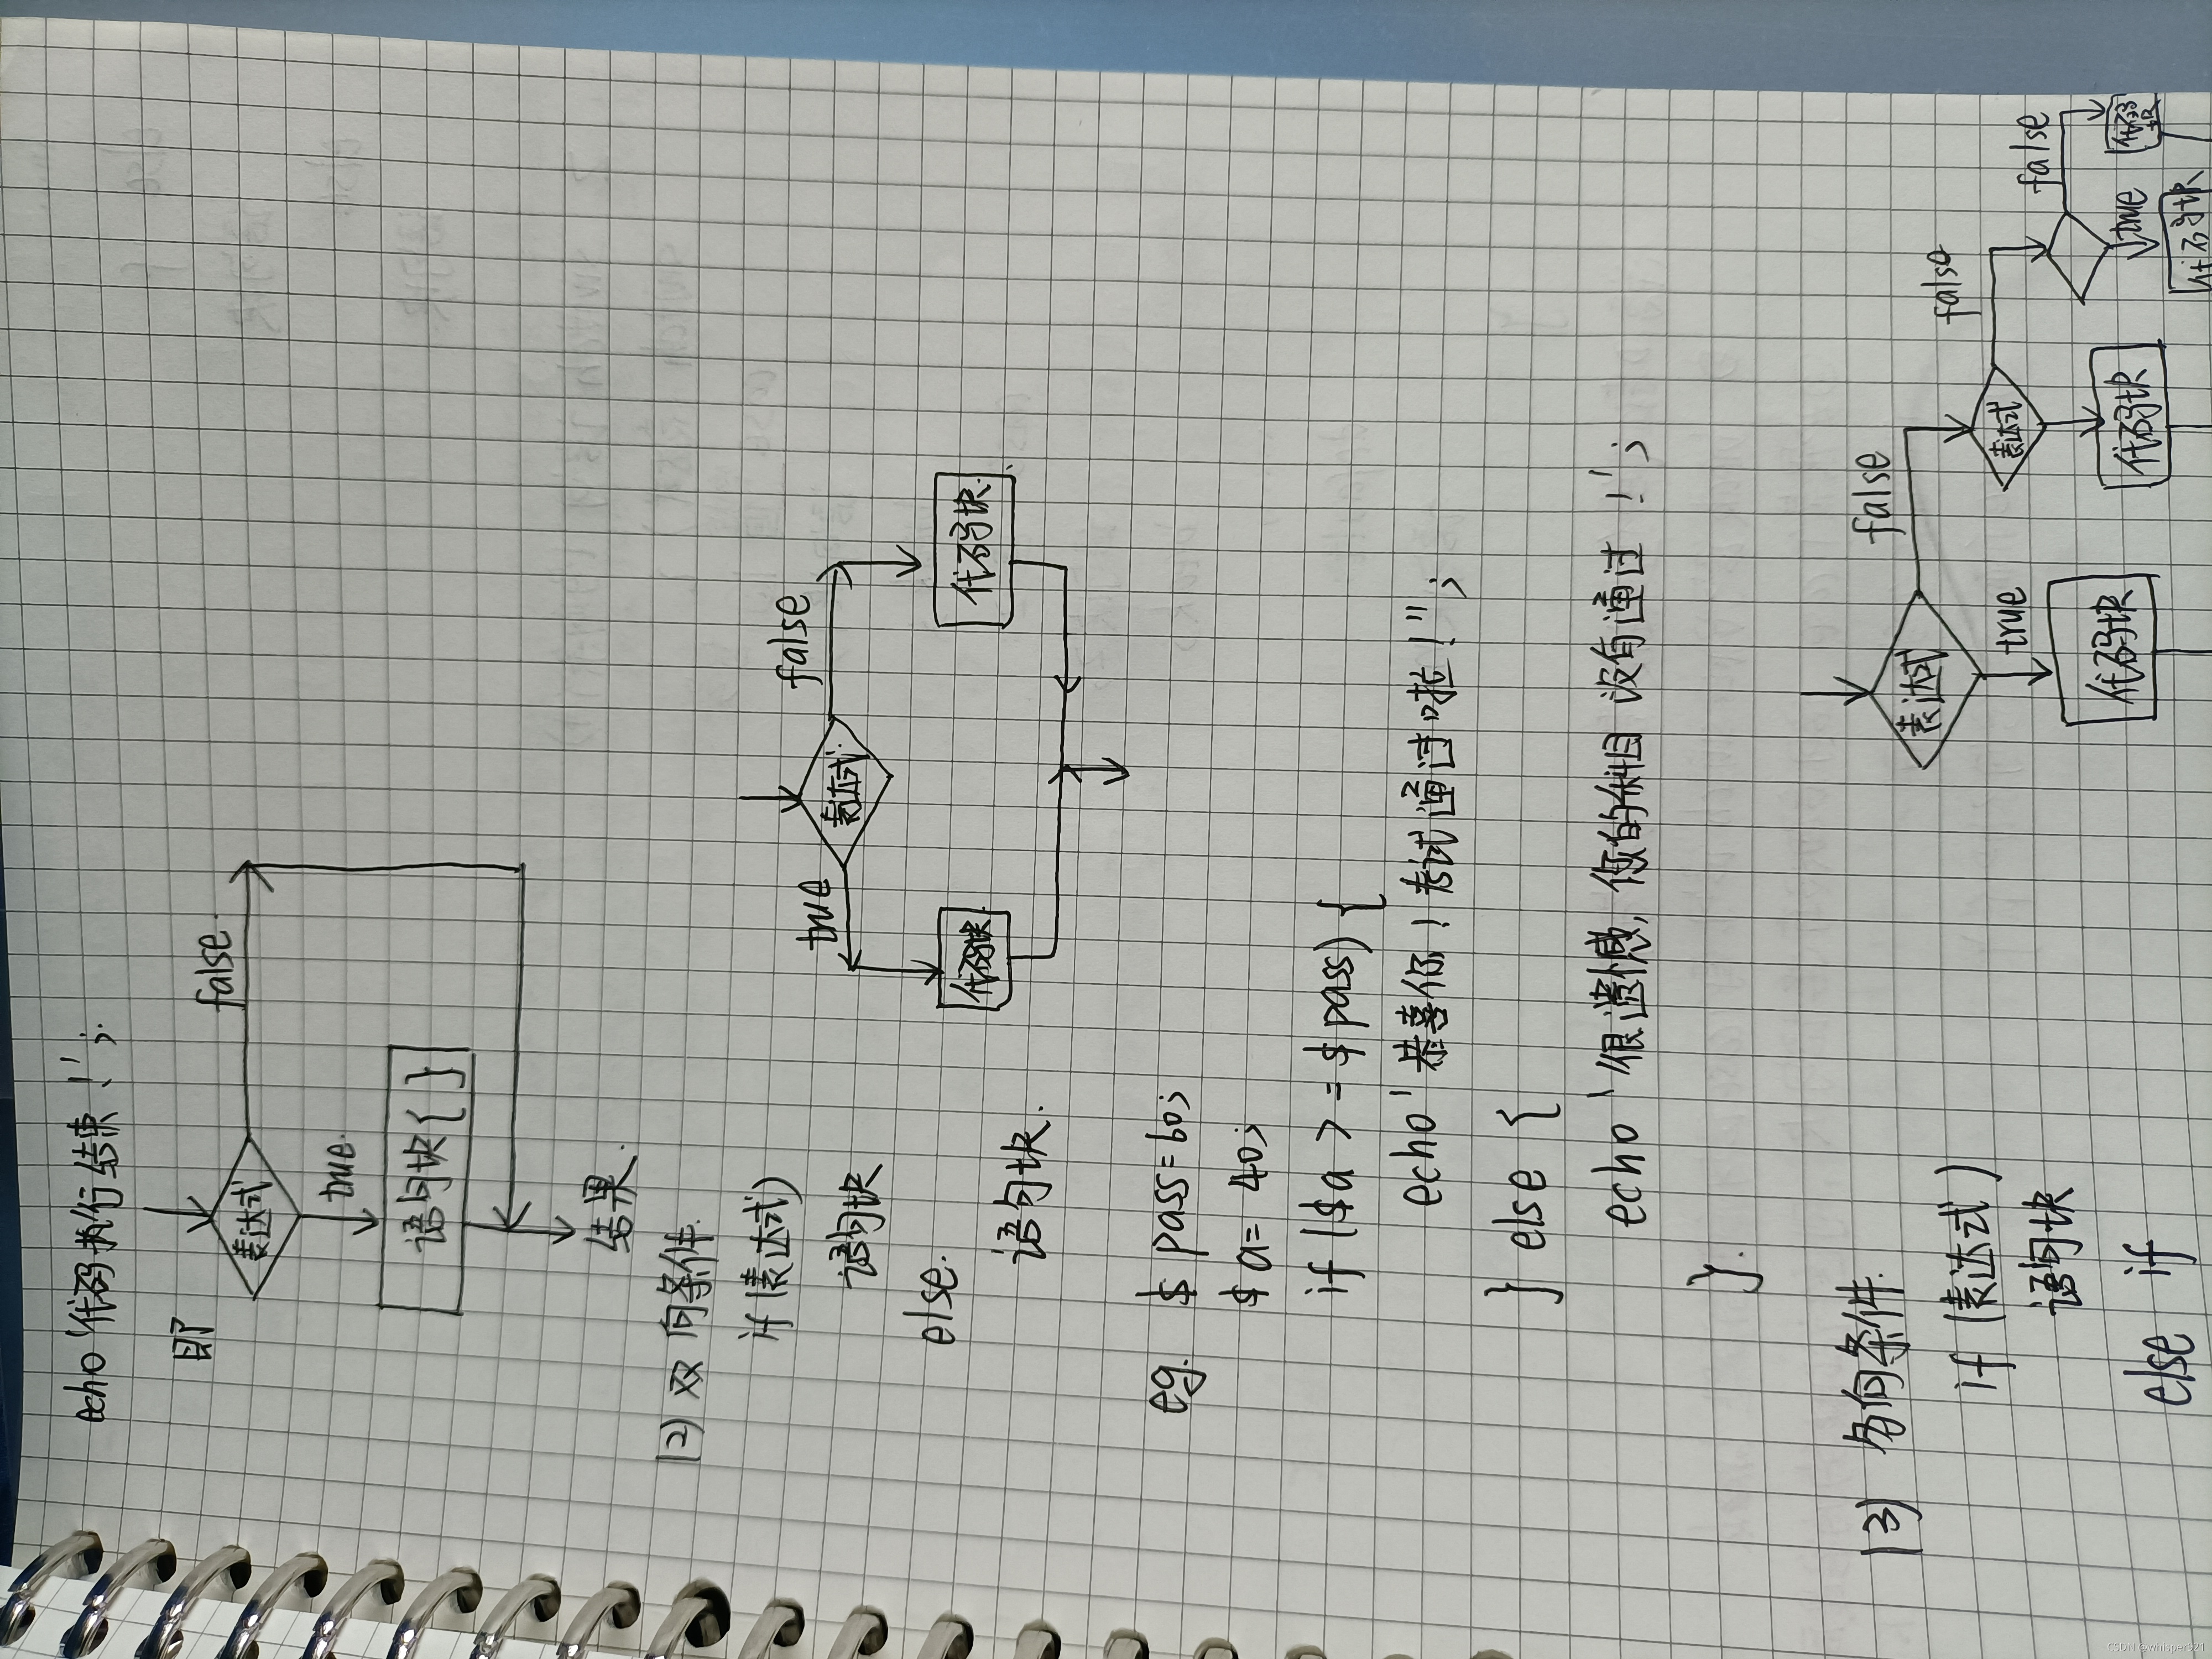 echo '代码执行结束！';
即
表达式
false
true
语句块{ }
结果
(2) 双向条件
if (表达式)
语句块
else
语句块
表达式
true
false
代码块
代码块
eg. $pass=60;
$a=40;
if ($a >= $pass) {
echo '恭喜你！考试通过啦！";
} else {
echo '很遗憾,你的科目没有通过！';
}
(3) 多向条件
if (表达式)
语句块
else if
表达式
false
true
代码块
表达式
false
代码块
false
true
代码块
代码块
CSDN @whisper921